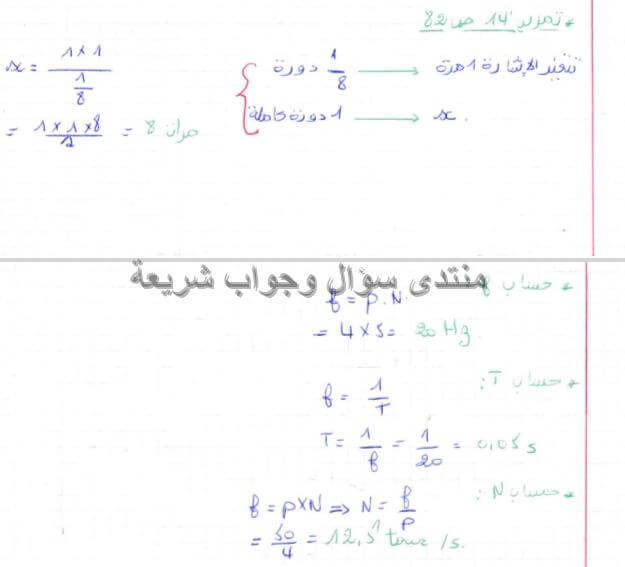 * تمرين 14 ص 82
تتغير الإشارة 1 مرة ⟶ 1/8 دورة
x ⟶ 1 دورة كاملة
x = (1 × 1) / (1/8)
= (1 × 1 × 8) / 1 = 8 مرات
منتدى سؤال وجواب شريعة
* حساب f
f = p.N
= 4 × 5 = 20 Hz
* حساب T:
f = 1/T
T = 1/f = 1/20 = 0,05 s
* حساب N:
f = p×N ⇒ N = f/p
= 50/4 = 12,5 /s.